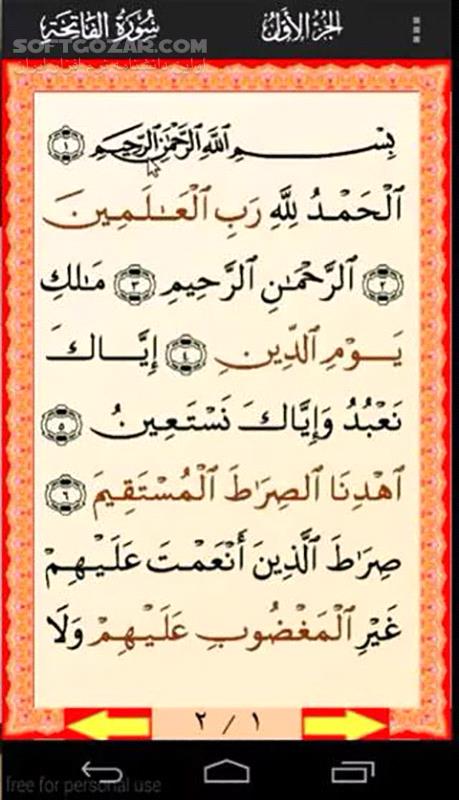 الجُزءُ الأوَّلُ سُورَةُ الفَاتِحَةِ
SOFTGOZAR.COM
بِسْمِ ٱللَّهِ ٱلرَّحْمَٰنِ ٱلرَّحِيمِ ١
ٱلْحَمْدُ لِلَّهِ رَبِّ ٱلْعَـٰلَمِينَ
٢ ٱلرَّحْمَـٰنِ ٱلرَّحِيمِ ٣ مَـٰلِكِ
يَوْمِ ٱلدِّينِ ٤ إِيَّاكَ
نَعْبُدُ وَإِيَّاكَ نَسْتَعِينُ ٥
ٱهْدِنَا ٱلصِّرَٰطَ ٱلْمُسْتَقِيمَ ٦
صِرَٰطَ ٱلَّذِينَ أَنْعَمْتَ عَلَيْهِمْ
غَيْرِ ٱلْمَغْضُوبِ عَلَيْهِمْ وَلَا
١ / ٢
free for personal use